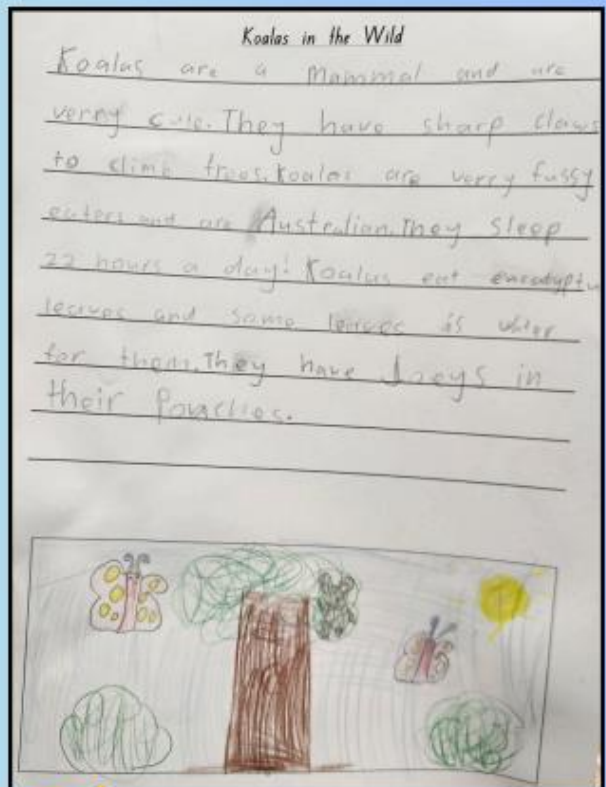 Koalas in the Wild
Koalas are a Mammal and are
verry cute. They have sharp claws
to climb trees. Koalas are verry fussy
eaters and are Australian. They sleep
22 hours a day! Koalas eat
leaves and some leaves is water
for them. They have Joeys in
their